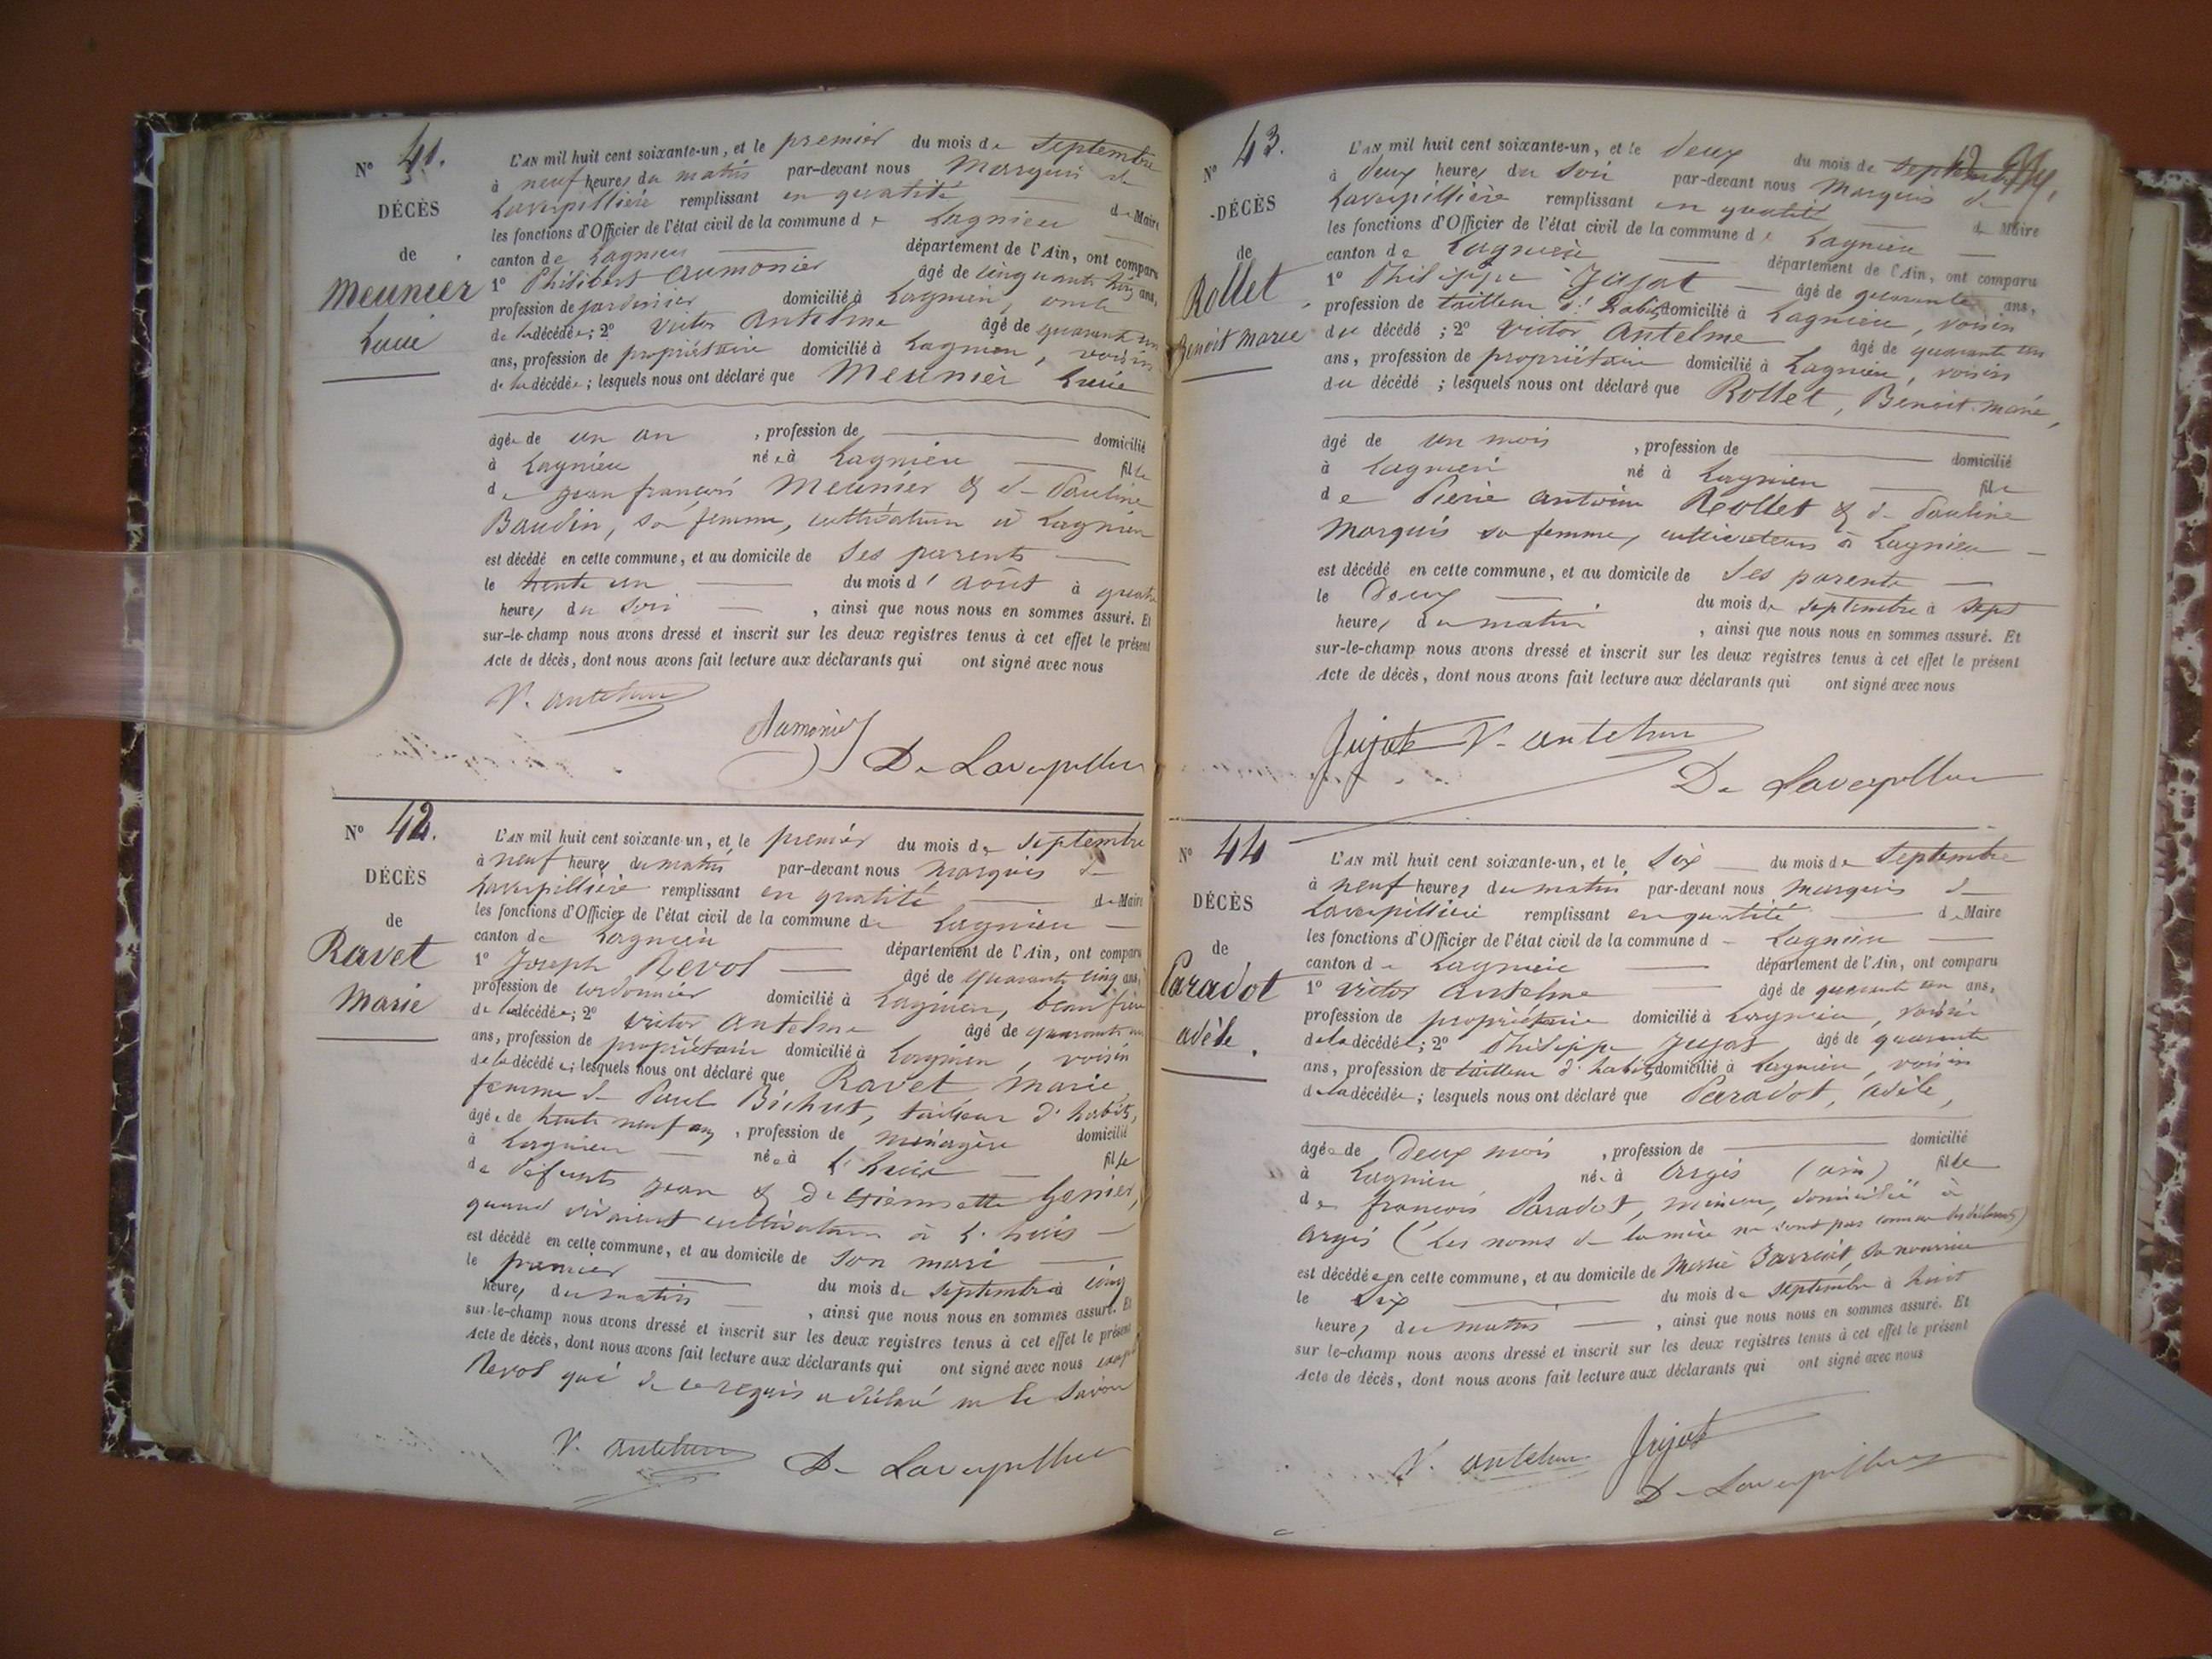 N° 41.
DÉCÈS
de
Meunier
Lucie
L'AN mil huit cent soixante-un, et le premier du mois de Septembre
à neuf heures du matin par-devant nous Marquis de
Laverpillière remplissant en qualité de Maire
les fonctions d'Officier de l'état civil de la commune de Lagnieu
canton de Lagnieu département de l'Ain, ont comparu
1° Philibert Aumonier âgé de cinquante ans,
profession de jardinier domicilié à Lagnieu, oncle
de la décédée; 2° Victor Antelme âgé de quarante un
ans, profession de propriétaire domicilié à Lagnieu, voisin
de la décédée; lesquels nous ont déclaré que Meunier Lucie
âgée de un an , profession de domicilié
à Lagnieu née à Lagnieu fille
de Jean françois Meunier & de Pauline
Baudin, sa femme, cultivateurs à Lagnieu
est décédé en cette commune, et au domicile de ses parents
le trente un du mois d'août à quatre
heures du soir , ainsi que nous nous en sommes assuré. Et
sur-le-champ nous avons dressé et inscrit sur les deux registres tenus à cet effet le présent
Acte de décès, dont nous avons fait lecture aux déclarants qui ont signé avec nous
V. antelme
Aumonier
De Laverpillière
N° 42.
DÉCÈS
de
Ravet
Marie
L'AN mil huit cent soixante-un, et le premier du mois de Septembre
à neuf heures du matin par-devant nous Marquis de
Laverpillière remplissant en qualité de Maire
les fonctions d'Officier de l'état civil de la commune de Lagnieu
canton de Lagnieu département de l'Ain, ont comparu
1° Joseph Revol âgé de quarante cinq ans,
profession de cordonnier domicilié à Lagnieu, beau frère
de la décédée; 2° Victor Antelme âgé de quarante un
ans, profession de propriétaire domicilié à Lagnieu, voisin
de la décédée; lesquels nous ont déclaré que Ravet Marie
femme de Paul Bichut, tailleur d'habits,
âgée de trente neuf ans, profession de ménagère domicilié
à Lagnieu née à fille
de défunts Jean & de
quand vivaient cultivateurs à
est décédé en cette commune, et au domicile de son mari
le premier du mois de septembre à cinq
heures du matin , ainsi que nous nous en sommes assuré. Et
sur-le-champ nous avons dressé et inscrit sur les deux registres tenus à cet effet le présent
Acte de décès, dont nous avons fait lecture aux déclarants qui ont signé avec nous excepté
Revol qui de ce requis a déclaré ne le savoir
V. antelme
De Laverpillière
N° 43.
DÉCÈS
de
Rollet
Benoit Marie
L'AN mil huit cent soixante-un, et le deux du mois de septembre
à deux heures du soir par-devant nous Marquis de
Laverpillière remplissant en qualité de Maire
les fonctions d'Officier de l'état civil de la commune de Lagnieu
canton de Lagnieu département de l'Ain, ont comparu
1° Philippe Jujat âgé de quarante ans,
profession de tailleur d'habits domicilié à Lagnieu, voisin
du décédé ; 2° Victor Antelme âgé de quarante un
ans, profession de propriétaire domicilié à Lagnieu, voisin
du décédé ; lesquels nous ont déclaré que Rollet, Benoit-Marie,
âgé de un mois , profession de domicilié
à Lagnieu né à Lagnieu fils
de Pierre Antoine Rollet & de Pauline
Marquis sa femme, cultivateurs à Lagnieu
est décédé en cette commune, et au domicile de ses parents
le Deux du mois de septembre à sept
heures du matin , ainsi que nous nous en sommes assuré. Et
sur-le-champ nous avons dressé et inscrit sur les deux registres tenus à cet effet le présent
Acte de décès, dont nous avons fait lecture aux déclarants qui ont signé avec nous
Jujat V. antelme
De Laverpillière
N° 44
DÉCÈS
de
Paradot
adèle.
L'AN mil huit cent soixante-un, et le six du mois de Septembre
à neuf heures du matin par-devant nous Marquis de
Laverpillière remplissant en qualité de Maire
les fonctions d'Officier de l'état civil de la commune d Lagnieu
canton de Lagnieu département de l'Ain, ont comparu
1° Victor Antelme âgé de quarante un ans,
profession de propriétaire domicilié à Lagnieu, voisin
de la décédée; 2° Philippe Jujat âgé de quarante
ans, profession de tailleur d'habits domicilié à Lagnieu, voisin
de la décédée; lesquels nous ont déclaré que Paradot, adèle,
âgée de Deux mois , profession de domicilié
à Lagnieu née à Argis (ain) fille
de françois Paradot, mineur, domicilié à
Argis (les noms de la mère ne sont pas connus des déclarants)
est décédée en cette commune, et au domicile de sa nourrice
le six du mois de septembre à huit
heures du matin , ainsi que nous nous en sommes assuré. Et
sur le-champ nous avons dressé et inscrit sur les deux registres tenus à cet effet le présent
Acte de décès, dont nous avons fait lecture aux déclarants qui ont signé avec nous
V. antelme Jujat
De Laverpillière